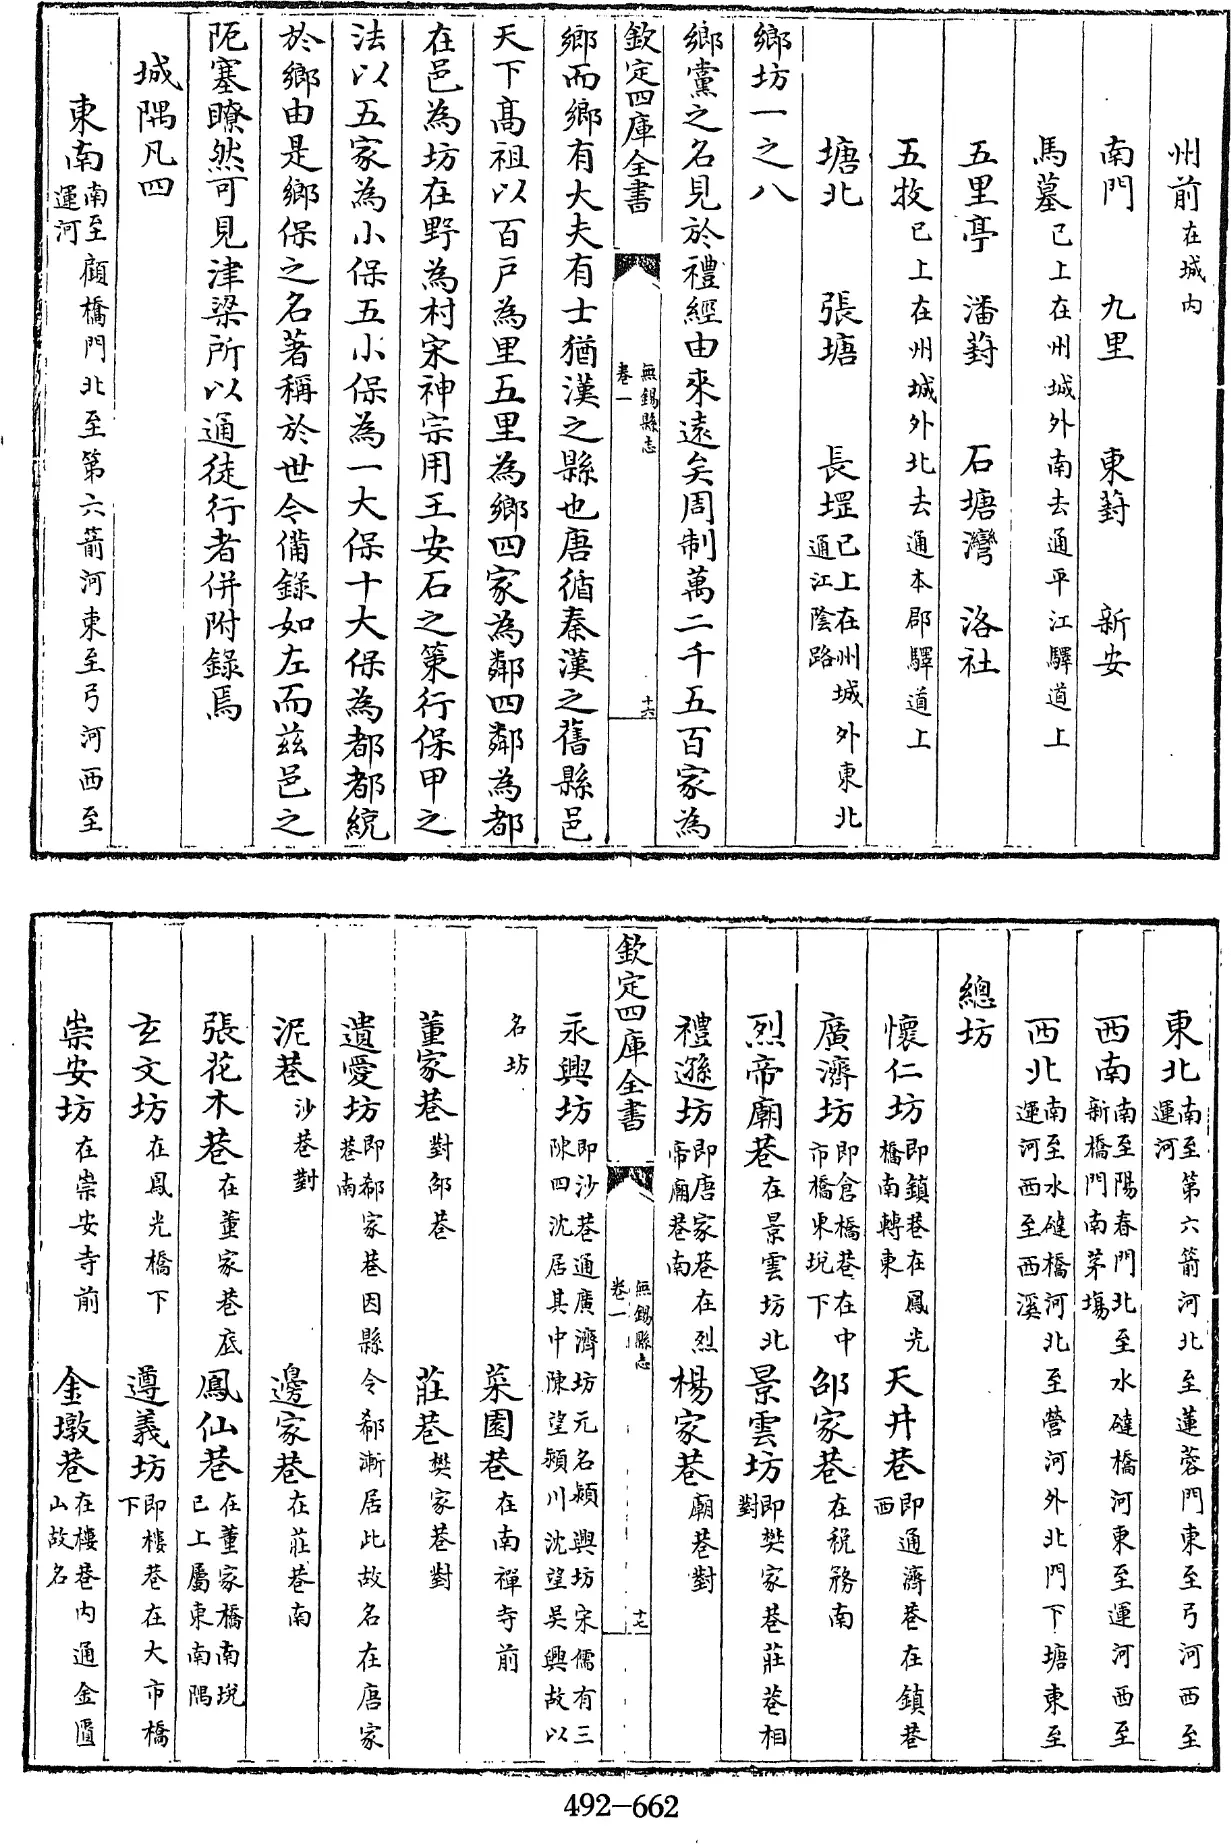 州前在城内
南門　九里　東葑　新安
馬墓已上在州城外南去通平江驛道上
五里亭　潘葑　石塘灣　洛社
五牧已上在州城外北去通本郡驛道上
塘北　張塘　長堽已上在州城外東北通江陰路
鄉坊一之八
鄉黨之名見於禮經由來遠矣周制萬二千五百家為
欽定四庫全書　無錫縣志　卷一　十六
鄉而鄉有大夫有士猶漢之縣也唐循秦漢之舊縣邑
天下髙祖以百戸為里五里為鄉四家為鄰四鄰為都
在邑為坊在野為村宋神宗用王安石之策行保甲之
法以五家為小保五小保為一大保十大保為都都統
於鄉由是鄉保之名著稱於世今備錄如左而兹邑之
阨塞瞭然可見津梁所以通徒行者併附錄焉
城隅凡四
東南南至顧橋門北至第六箭河東至弓河西至運河
東北南至第六箭河北至蓮蓉門東至弓河西至運河
西南南至陽春門北至水䃮橋河東至運河西至新橋門南茅塲
西北南至水䃮橋河北至營河外北門下塘東至運河西至西溪
總坊
懷仁坊即鎮巷在鳳光橋南轉東　天井巷即通濟巷在鎮巷西
廣濟坊即倉橋巷在中市橋東堍下　邵家巷在税務南
烈帝廟巷在景雲坊北　景雲坊即樊家巷莊巷相對
禮遜坊即唐家巷在烈帝廟巷南　楊家巷廟巷對
欽定四庫全書　無錫縣志　卷一　十七
永興坊即沙巷通廣濟坊元名潁興坊宋儒有三陳四沈居其中陳望潁川沈望吳興故以
名坊　菜園巷在南禪寺前
董家巷對邵巷　莊巷樊家巷對
遺愛坊即郗家巷因縣令郗漸居此故名在唐家巷南
泥巷沙巷對　邊家巷在莊巷南
張花木巷在董家巷底　鳳仙巷在董家橋南堍已上屬東南隅
玄文坊在鳳光橋下　遵義坊即樓巷在大市橋下
崇安坊在崇安寺前　金墩巷在樓巷内通金匱山故名
492-662